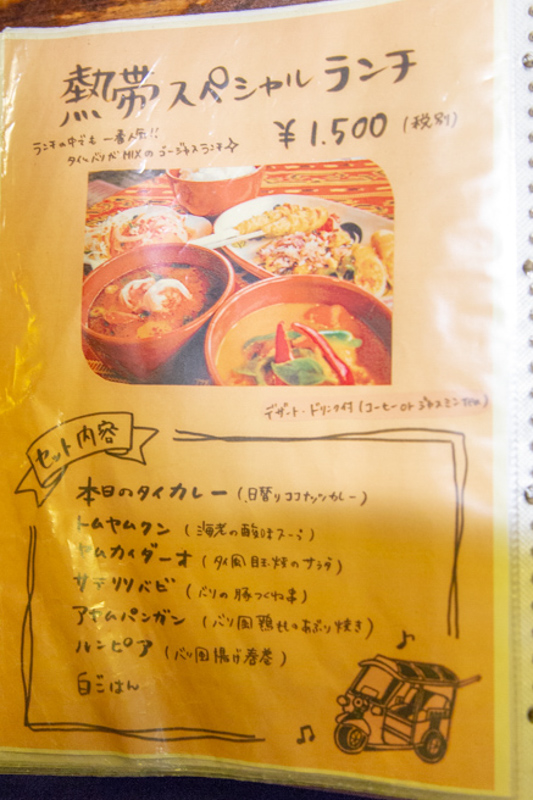 熱帯スペシャルランチ
ランチの中でも一番人気!!
タイ・バリがMIXのゴージャスランチ☆
¥1.500(税別)
デザート・ドリンク付(コーヒー or ジャスミンtea)
セット内容
本日のタイカレー(日替りココナッツカレー)
トムヤムクン(海老の酸味スープ)
ヤムカイダーオ(タイ風目玉焼のサラダ)
サテリリバビ(バリの豚つくね串)
アヤムパンガン(バリ風鶏ももあぶり焼き)
ルンピア(バリ風揚げ春巻)
白ごはん